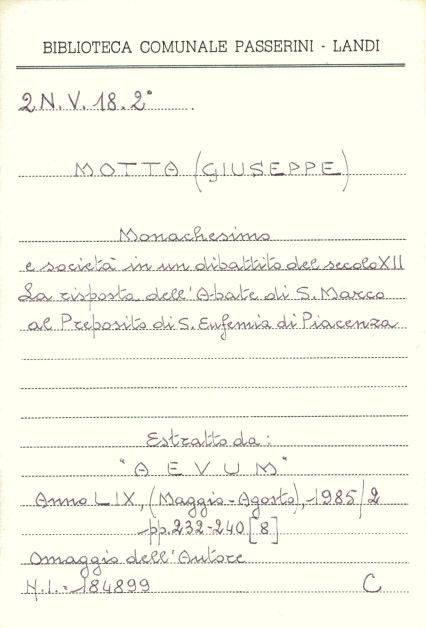 BIBLIOTECA COMUNALE PASSERINI - LANDI
2N.V.18.2°
MOTTA (GIUSEPPE)
Monachesimo
e società in un dibattito del secolo XII
La risposta dell'Abate di S. Marco
al Preposito di S. Eufemia di Piacenza
Estratto da:
"AEVUM"
Anno LIX, (Maggio-Agosto), 1985/2
pp. 232-240 [8]
Omaggio dell'Autore
N.I. = 184899 C